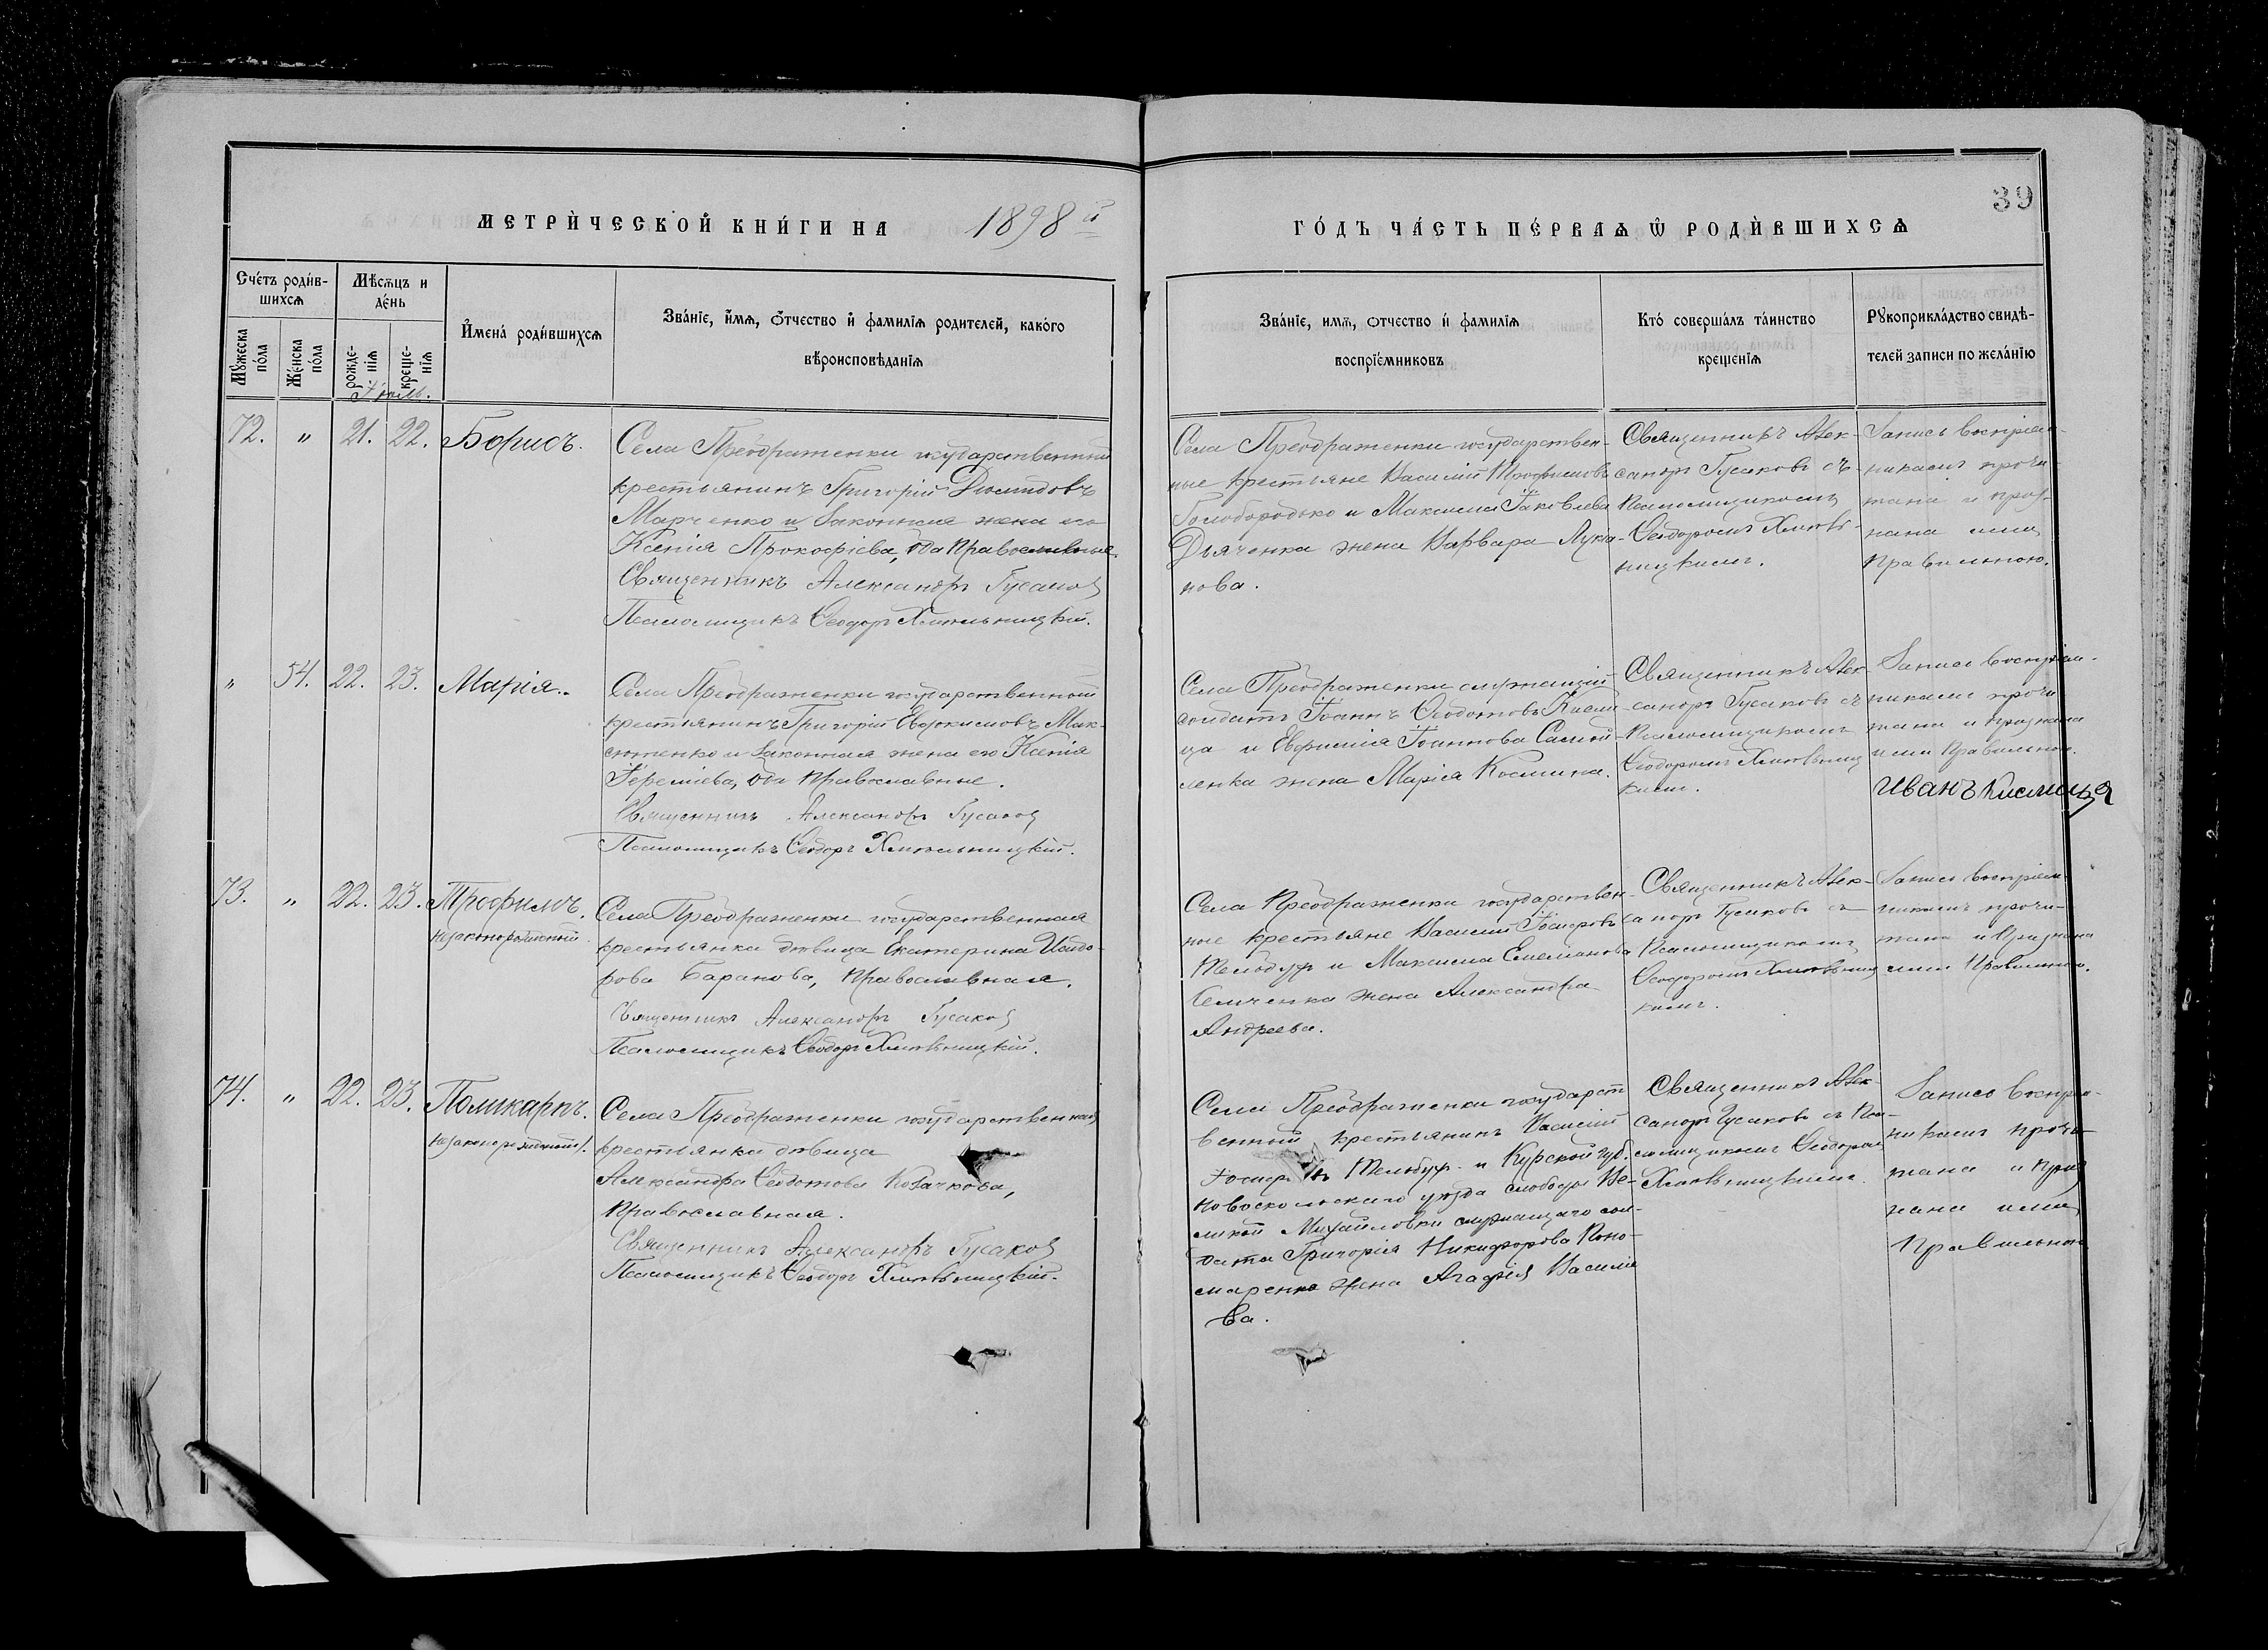 39
МЕТРИ́ЧЕСКОЙ КНИ́ГИ НА 1898й
ГО́ДЪ ЧА́СТЬ ПЕ́РВАѦ Ѡ РОДИ́ВШИХСѦ
Сче́тъ роди́в-
шихсѧ
Мѣ́сѧцъ и
де́нь
Мꙋ́жеска
по́ла
Же́нска
по́ла
рожде-
нїѧ
креще-
нїѧ
Имена́ роди́вшихсѧ
Зва́нїе, и́мѧ, ѻ́тчество и фамилїѧ родителей, како́го
вѣроисповѣ́данїѧ
Зва́нїе, имѧ, ѻтчество и́ фамилїѧ
воспрїе́мниковъ
Кто́ соверша́лъ та́инство
креще́нїѧ
Рꙋкоприкла́дство свидѣ́-
телей записи по жела́нїю
Іюль.
72. " 21. 22. Борисъ.
Села Преображенки государственный
крестьянинъ Григорій Діомидовъ
Марченко и законная жена его
Ксенія Прокофіева, оба православные.
Священникъ Александръ Гусаковъ
Псаломщикъ Ѳеодоръ Хмельницкій.
Села Преображенки государствен-
ные крестьяне Василій Трофимовъ
Голобородько и Максима Іаковлева
Дьяченка жена Варвара Лукія-
нова.
Священникъ Алек-
сандръ Гусаковъ съ
Псаломщикомъ
Ѳеодоромъ Хмель-
ницкимъ.
Запись воспріем-
никамъ прочи-
тана и приз-
нана ими
правильною.
" 54. 22. 23. Марія.
Села Преображенки государственный
крестьянинъ Григорій Евдокимовъ Мак-
сютенко и законная жена его Ксенія
Іереміева, оба православные.
Священникъ Александръ Гусаковъ
Псаломщикъ Ѳеодоръ Хмельницкій.
Села Преображенки служащій
солдатъ Іоаннъ Ѳеодотовъ Кисли-
ца и Евфимія Іоаннова Самой-
ленка жена Марія Космина.
Священникъ Алек-
сандръ Гусаковъ съ
Псаломщикомъ
Ѳеодоромъ Хмельниц
кимъ.
Запись воспріем-
никамъ прочи
тана и признана
ими правильною.
Иванъ Кислица
73. " 22. 23. Трофимъ.
незаконорожденный.
Села Преображенки государственная
крестьянка дѣвица Екатерина Исидо-
рова Баранова, православная.
Священникъ Александръ Гусаковъ
Псаломщикъ Ѳеодоръ Хмельницкій.
Села Преображенки государствен-
ные крестьяне Василій Іосифовъ
Тельбухъ и Максима Емельянова
Семченка жена Александра
Андреева.
Священникъ Алек-
сандръ Гусаковъ съ
Псаломщикомъ
Ѳеодоромъ Хмельниц
кимъ.
Запись воспріем
никамъ прочи-
тана и признана
ими правильною.
74. " 22. 23. Поликарпъ.
незаконорожденный.
Села Преображенки государственная
крестьянка дѣвица
Александра Ѳеодотова Козачкова,
православная.
Священникъ Александръ Гусаковъ
Псаломщикъ Ѳеодоръ Хмельницкій.
Села Преображенки государст
венный крестьянинъ Василій
Іосифовъ Тельбухъ и Курской губ.
Новооскольскаго уѣзда слободы Ве-
ликой Михайловки служащаго сол-
дата Григорія Никифорова Поно-
маренка жена Агафія Василіе
ва.
Священникъ Алек-
сандръ Гусаковъ съ Пса-
ломщикомъ Ѳеодоромъ
Хмельницкимъ.
Запись воспріем-
никамъ прочи
тана и приз
нана ими
правильною